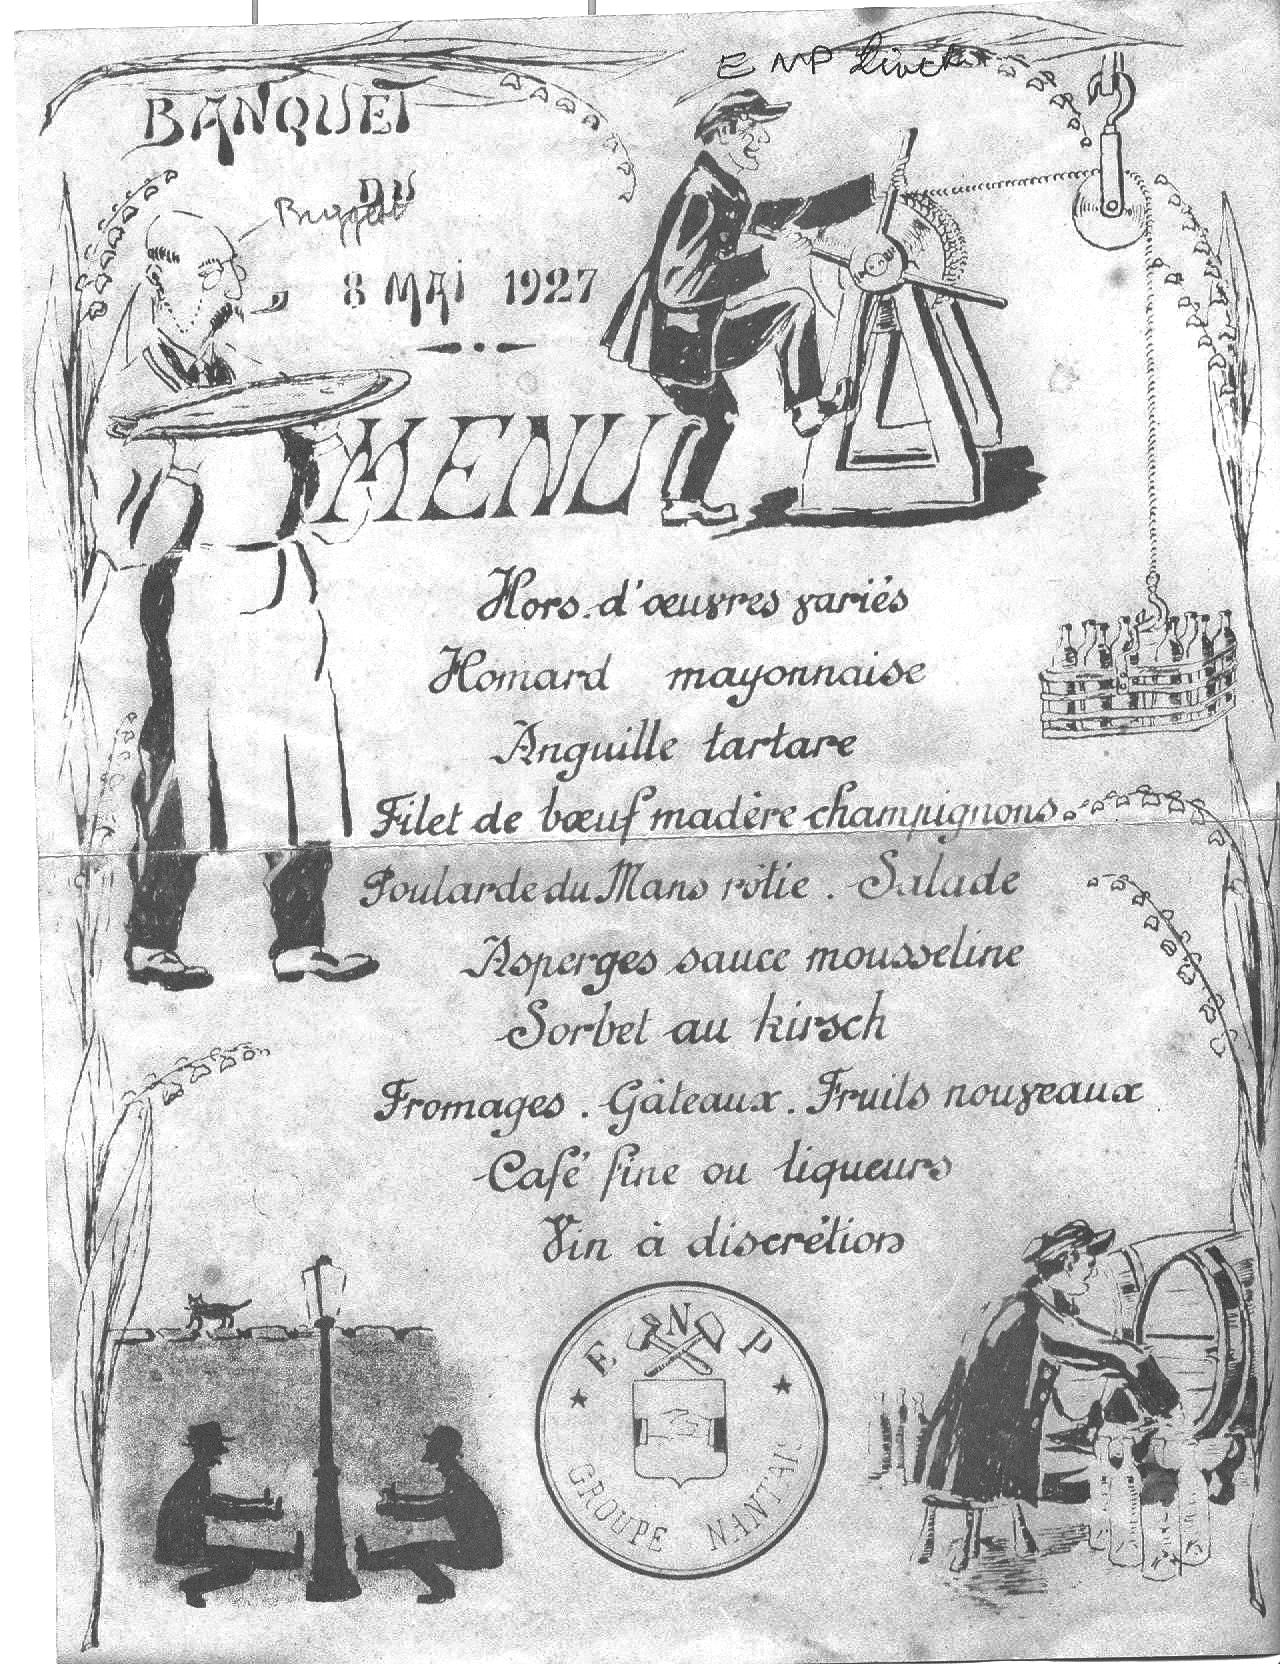 E MP
BANQUET
DU
8 MAI 1927
MENU
Hors. d'œuvres variés
Homard mayonnaise
Anguille tartare
Filet de bœuf madère champignons.
Poularde du Mans rôtie. Salade
Asperges sauce mousseline
Sorbet au kirsch
Fromages. Gâteaux. Fruits nouveaux
Café fine ou liqueurs
Vin à discrétion
E N P
GROUPE NANTAIS